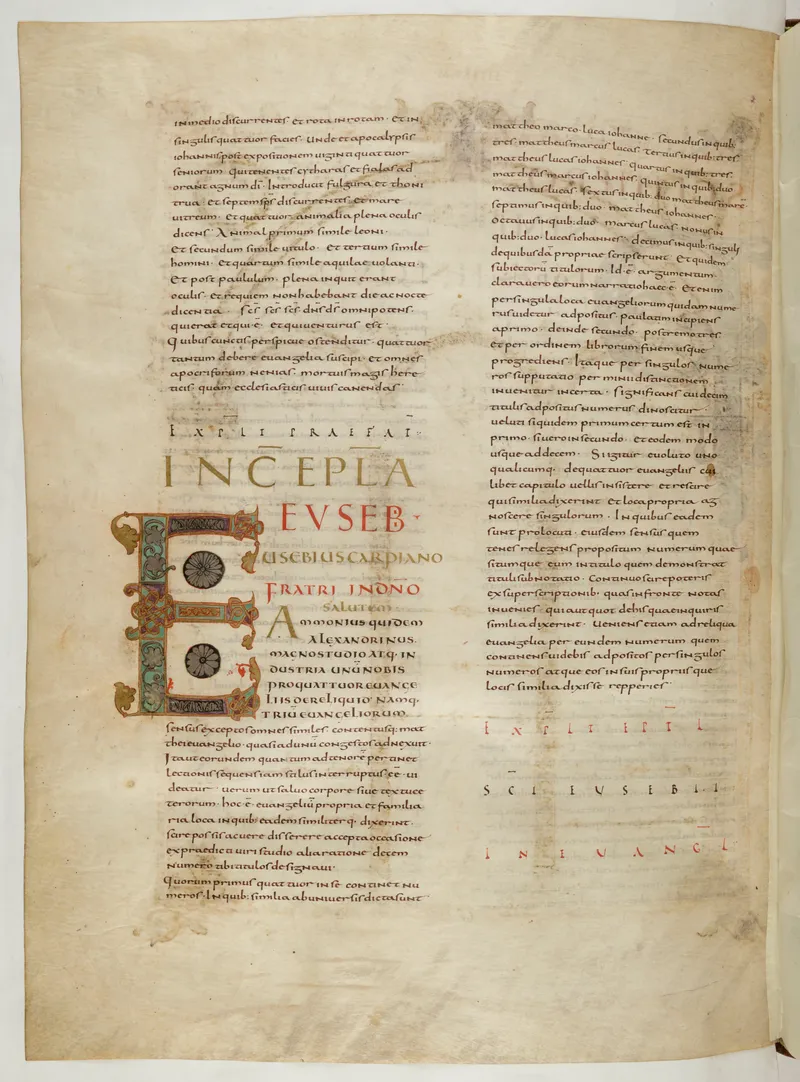 in medio discurrentes et rota in rotam · et in
singulis quattuor facies · Unde et apocalypsis
iohannis post expositionem uiginti quattuor
seniorum · qui tenentes cytharas et fialas ad
orant agnum di · Introducit fulgura et thoni
trua et septem sps discurrentes et mare
uitreum · Et quattuor animalia plena oculis
dicens · Animal primum simile leoni ·
Et secundum simile uitulo · et tertium simile
homini · Et quartum simile aquilae uolanti ·
Et post paululum · plena inquit erant
oculis · et requiem non habebant die ac nocte
dicentia · scs scs scs dns ds omnipotens ·
qui erat et qui e · et qui uenturus est ·
Quibus cunctis perspicue ostenditur · quattuor
tantum debere euangelia suscipi · et omnes
apocriforum nenias · mortuis magis here
ticis · quam ecclesiasticis uiuis canendas ·
EXPLI PRAEFAT ·
INCEP LA
EUSEB ·
EUSEBIUS CARPIANO
FRATRI IN DNO
SALUTEM
AMMONIUS QUIDEM
ALEXANDRINUS
MAGNO STUDIO ATQ · IN
DUSTRIA UNU NOBIS
PRO QUATTUOR EUANGE
LIIS DERELIQUIT · NAMQ ·
TRIU EUANGELIORUM
sensus excerptos omnes similes contentusq · mat
thei euangelio · quasi ad unu congestos adnexuit ·
Ita ut eorundem quantum ad tenore pertinet
lectionis sequens iam stilus interruptus ee · ui
deatur · uerum ut saluo corpore siue textu ce
terorum · hoc e euangeliu propria et familia
ria loca in quib: eadem similiterq · dixerint ·
scire possis ac uere disserere accepta occasione
ex praedicti uiri studio alia ratione decem
numero tibi titulos designaui ·
Quorum primus quattuor in se continet nu
meros · In quib: similia ab uniuersis dicta sunt ·
mattheo marco · luca iohanne · secundus in quib:
tres mattheus marcus lucas tertius in quib: tres
mattheus lucas iohannes quartus in quib: tres
mattheus marcus iohannes quintus in quib: duo
mattheus lucas · sextus in quib: duo mattheus marc
septimus in quib: duo mattheus iohannes ·
octauus in quib: duo · marcus lucas nonus in
quib: duo · lucas iohannes · decimus in quib: singuli
de quibusda propriae scripserunt · Et quidem
subiectoru titulorum · Id · e · argumentum ·
clara uero eorum narratio haec e · Etenim
per singula loca euangeliorum quidam nume
rus uidetur adpositus paulatim incipiens
a primo · deinde secundo · postremo tres
et per ordinem librorum finem usque
progrediens · Itaque per singulos nume
ros supputatio per minii distinctionem
inuenitur inserta · significans cui decim
titulis adpositus numerus dinoscatur ·
ueluti siquidem primum certum est in
primo · si uero in secundo · et eodem modo
usque ad decem · Si igitur euoluto uno
qualicumq · de quattuor euangeliis cui
libet capitulo uellis insistere et rescire
qui similia dixerint et loca propria ag
noscere singulorum · In quibus eadem
sunt prolocuti · eiusdem sensus quem
tenes relegens propositum numerum quae
situmque eum in titulo quem demonstrat
tituli subnotatio · Continuo scire poteris
ex superscriptionib · quas in fronte notas
inuenies qui aut quot de his quae inquiris
similia dixerint · Ueniens etiam ad reliqua
euangelia per eundem numerum quem
contines uidebis adpositos per singulos
numeros atque eos in suis propriisque
locis similia dixisse repperies ·
EXPLI EPTL
SCI EUSEBII ·
IN EUANGL